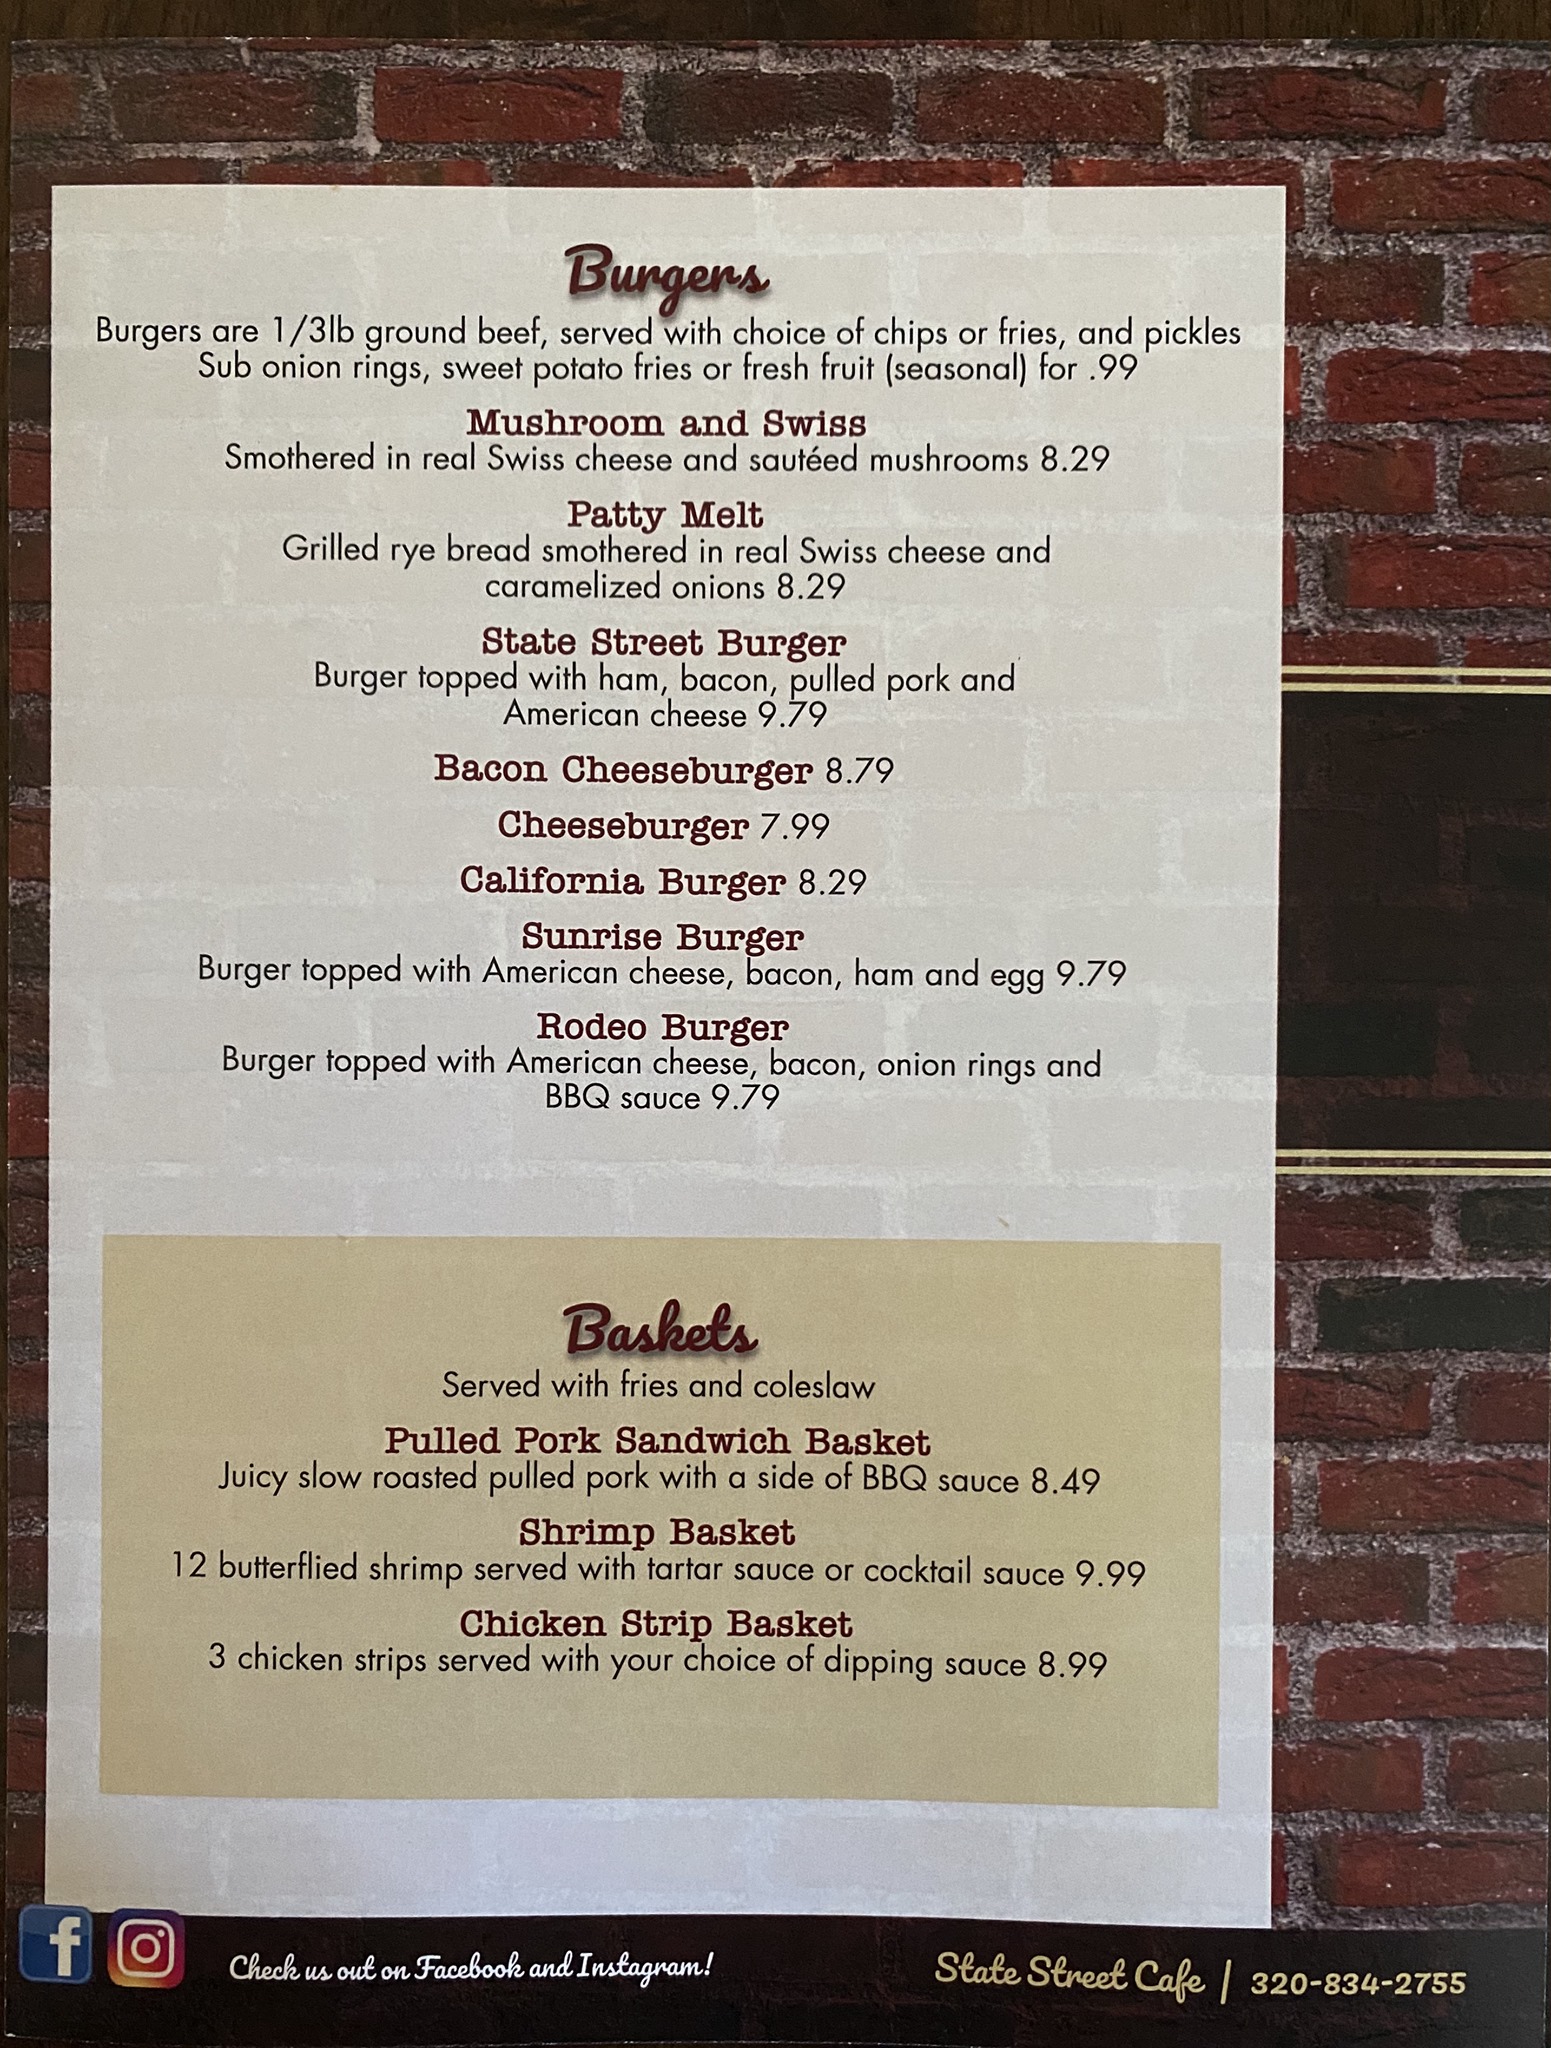 Burgers
Burgers are 1/3lb ground beef, served with choice of chips or fries, and pickles
Sub onion rings, sweet potato fries or fresh fruit (seasonal) for .99
Mushroom and Swiss
Smothered in real Swiss cheese and sautéed mushrooms 8.29
Patty Melt
Grilled rye bread smothered in real Swiss cheese and
caramelized onions 8.29
State Street Burger
Burger topped with ham, bacon, pulled pork and
American cheese 9.79
Bacon Cheeseburger 8.79
Cheeseburger 7.99
California Burger 8.29
Sunrise Burger
Burger topped with American cheese, bacon, ham and egg 9.79
Rodeo Burger
Burger topped with American cheese, bacon, onion rings and
BBQ sauce 9.79
Baskets
Served with fries and coleslaw
Pulled Pork Sandwich Basket
Juicy slow roasted pulled pork with a side of BBQ sauce 8.49
Shrimp Basket
12 butterflied shrimp served with tartar sauce or cocktail sauce 9.99
Chicken Strip Basket
3 chicken strips served with your choice of dipping sauce 8.99
Check us out on Facebook and Instagram!
State Street Cafe | 320-834-2755